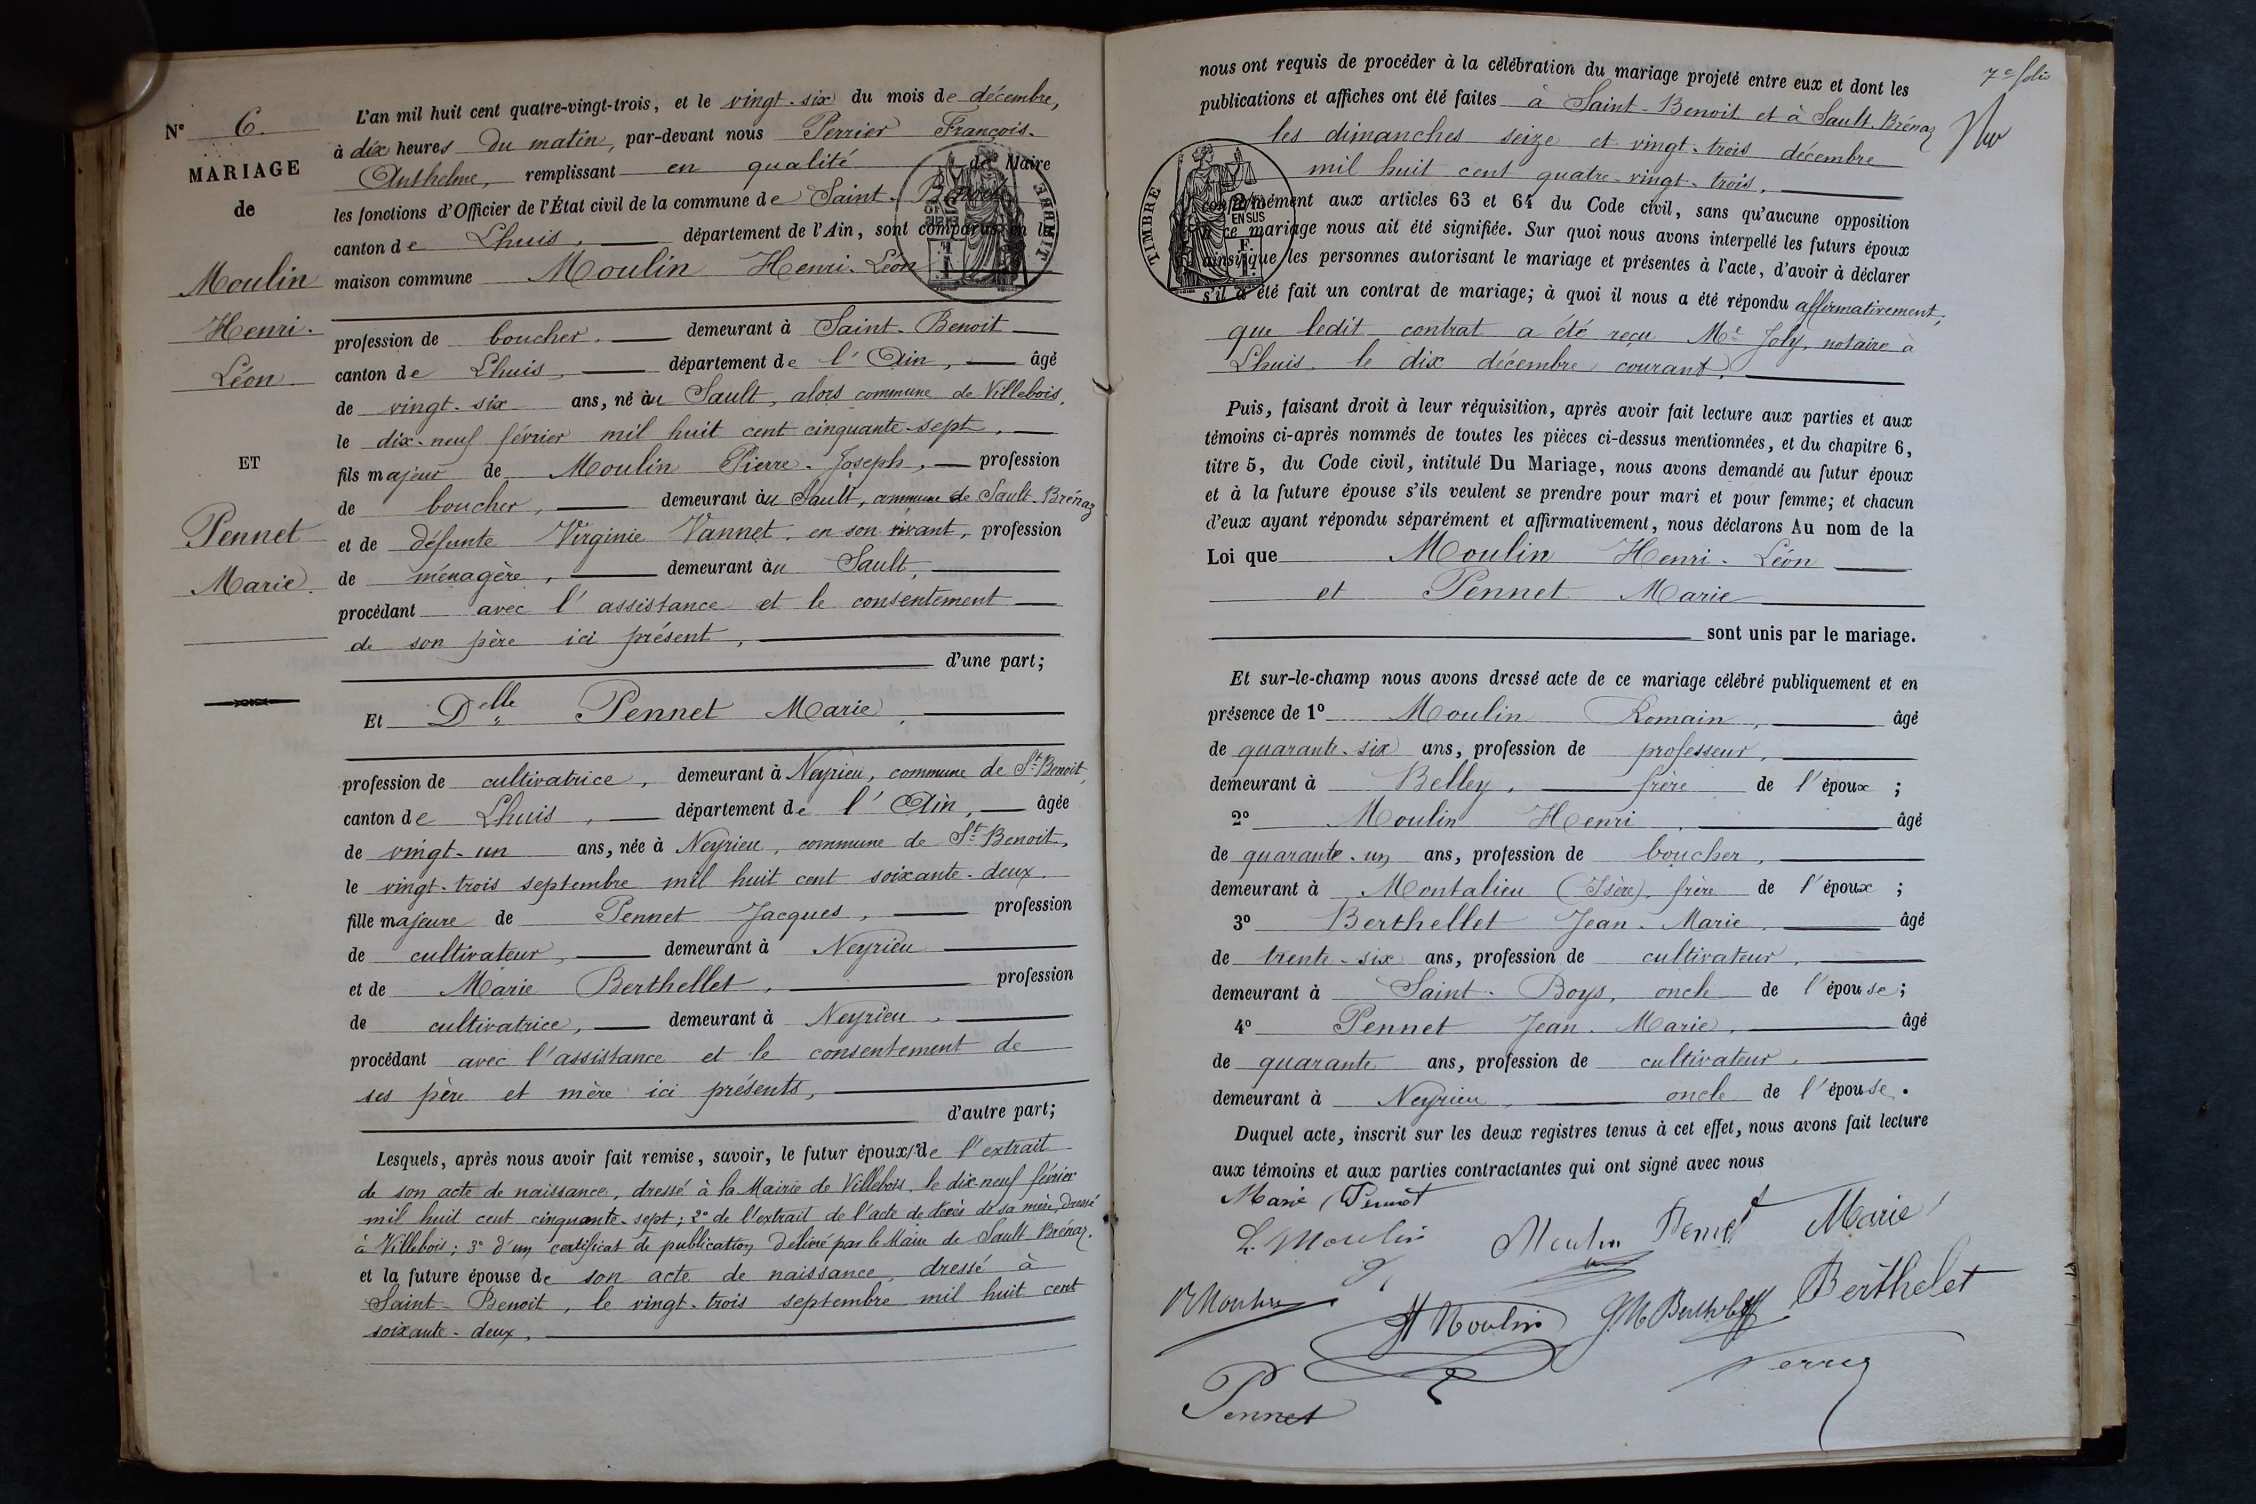 N° 6.
MARIAGE
de
Moulin
Henri-
Léon
ET
Pennet
Marie.
L'an mil huit cent quatre-vingt-trois, et le vingt-six du mois de décembre,
à dix heures du matin, par-devant nous Perrier François-
Anthelme, remplissant en qualité de Maire
les fonctions d'Officier de l'État civil de la commune de Saint-Benoit
canton de Lhuis, département de l'Ain, sont comparus en la
maison commune Moulin Henri-Léon
profession de boucher, demeurant à Saint-Benoit
canton de Lhuis, département de l'Ain, âgé
de vingt-six ans, né au Sault, alors commune de Villebois,
le dix-neuf février mil huit cent cinquante-sept,
fils majeur de Moulin Pierre-Joseph, profession
de boucher, demeurant au Sault, commune de Sault-Brénaz
et de défunte Virginie Vannet, en son vivant, profession
de ménagère, demeurant au Sault,
procédant avec l'assistance et le consentement
de son père ici présent,
d'une part;
Et Delle Pennet Marie,
profession de cultivatrice, demeurant à Neyrieu, commune de St Benoit,
canton de Lhuis, département de l'Ain, âgée
de vingt-un ans, née à Neyrieu, commune de St Benoit,
le vingt-trois septembre mil huit cent soixante-deux.
fille majeure de Pennet Jacques, profession
de cultivateur, demeurant à Neyrieu
et de Marie Berthellet, profession
de cultivatrice, demeurant à Neyrieu,
procédant avec l'assistance et le consentement de
ses père et mère ici présents,
d'autre part;
Lesquels, après nous avoir fait remise, savoir, le futur époux 1° de l'extrait
de son acte de naissance, dressé à la Mairie de Villebois, le dix-neuf février
mil huit cent cinquante-sept; 2° de l'extrait de l'acte de décès de sa mère, dressé
à Villebois; 3° d'un certificat de publication délivré par le Maire de Sault Brénaz.
et la future épouse de son acte de naissance, dressé à
Saint-Benoit, le vingt-trois septembre mil huit cent
soixante-deux,
7e folio
nous ont requis de procéder à la célébration du mariage projeté entre eux et dont les
publications et affiches ont été faites à Saint-Benoit et à Sault-Brénaz
les dimanches seize et vingt-trois décembre
mil huit cent quatre-vingt-trois,
TIMBRE
EN SUS
conformément aux articles 63 et 64 du Code civil, sans qu'aucune opposition
à ce mariage nous ait été signifiée. Sur quoi nous avons interpellé les futurs époux
ainsi que les personnes autorisant le mariage et présentes à l'acte, d'avoir à déclarer
s'il a été fait un contrat de mariage; à quoi il nous a été répondu affirmativement,
que ledit contrat a été reçu Me Joly, notaire à
Lhuis, le dix décembre courant,
Puis, faisant droit à leur réquisition, après avoir fait lecture aux parties et aux
témoins ci-après nommés de toutes les pièces ci-dessus mentionnées, et du chapitre 6,
titre 5, du Code civil, intitulé Du Mariage, nous avons demandé au futur époux
et à la future épouse s'ils veulent se prendre pour mari et pour femme; et chacun
d'eux ayant répondu séparément et affirmativement, nous déclarons Au nom de la
Loi que Moulin Henri-Léon
et Pennet Marie
sont unis par le mariage.
Et sur-le-champ nous avons dressé acte de ce mariage célébré publiquement et en
présence de 1° Moulin Romain, âgé
de quarante-six ans, profession de professeur,
demeurant à Belley, frère de l'époux;
2° Moulin Henri, âgé
de quarante-un ans, profession de boucher,
demeurant à Montalieu (Isère) frère de l'époux;
3° Berthellet Jean-Marie, âgé
de trente-six ans, profession de cultivateur,
demeurant à Saint-Boys, oncle de l'épouse;
4° Pennet Jean-Marie, âgé
de quarante ans, profession de cultivateur,
demeurant à Neyrieu, oncle de l'épouse.
Duquel acte, inscrit sur les deux registres tenus à cet effet, nous avons fait lecture
aux témoins et aux parties contractantes qui ont signé avec nous
Marie Pennet
L. Moulin Moulin Pennet Marie
R Moulin H Moulin J M Berthellet Berthelet
Pennet Perrier